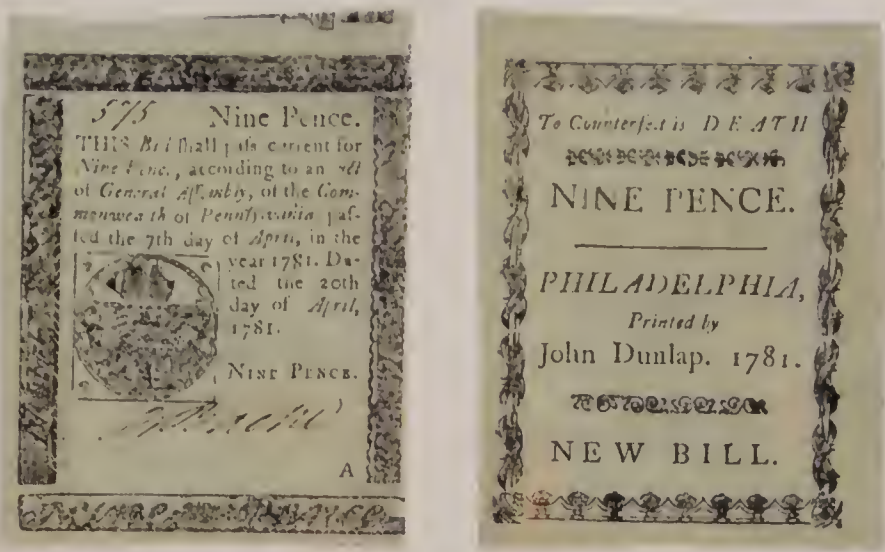 575 Nine Pence.
THIS Bill ſhall paſs current for
Nine Pence, according to an Act
of General Aſſembly, of the Com-
monwealth of Pennſylvania paſ-
ſed the 7th day of April, in the
year 1781. Da-
ted the 20th
day of April,
1781.
NINE PENCE.
A
To Counterfeit is DEATH
NINE PENCE.
PHILADELPHIA,
Printed by
John Dunlap. 1781.
NEW BILL.